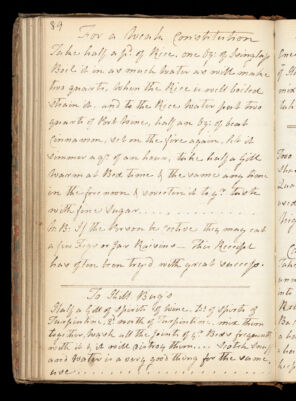 84
For a Weak Constitution
Take half a pd. of Rice, one oz. of Isinglass
Boil it in as much Water as will make
two quarts, when the Rice is well boiled
strain it, and to the Rice Water put two
quarts of Port Wine, half an oz. of beat
Cinnamon, set on the fire again, let it
simmer a qr. of an hour, take half a Gill
warm at Bed Time & the same any time
in the forenoon & sweeten it to yr. taste
with fine Sugar
NB: If the Person be costive they may eat
a few Figs or Jar Raisins — This Receipt
has often been try'd with great success.
To Kill Bugs
Half a Gill of Spirits of Wine, of Spirits of
Turpintine, worth of Turpintine, mix them
together, wash all the Joints of yr. Beds frequently
with it & it will distroy them Scotch Snuff
and Water is a very good thing for the same
use